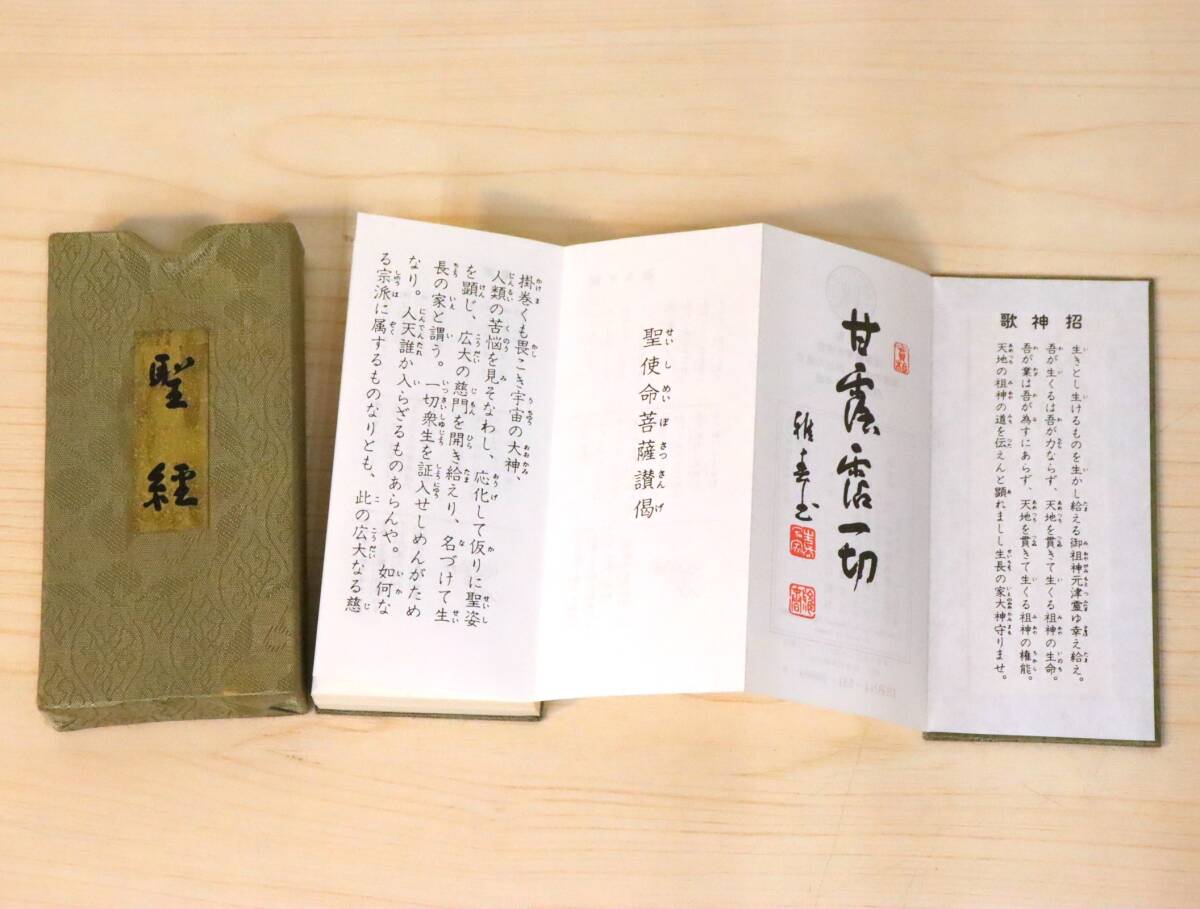 招神歌
生きとし生けるものを生かし給える御祖神元津霊ゆ幸え給え。
吾が生くるは吾が力ならず、天地を貫きて生くる祖神の生命。
吾が業は吾が為すにあらず、天地を貫きて生くる祖神の権能。
天地の祖神の道を伝えんと顕れましし生長の家大神守りませ。
甘露霑一切
雅春書
聖使命菩薩讃偈
掛巻くも畏こき宇宙の大神、
人類の苦悩を見そなわし、応化して仮りに聖姿
を顕じ、広大の慈門を開き給えり、名づけて生
長の家と謂う。一切衆生を証入せしめんがため
なり。人天誰か入らざるものあらんや。如何な
る宗派に属するものなりとも、此の広大なる慈
聖經